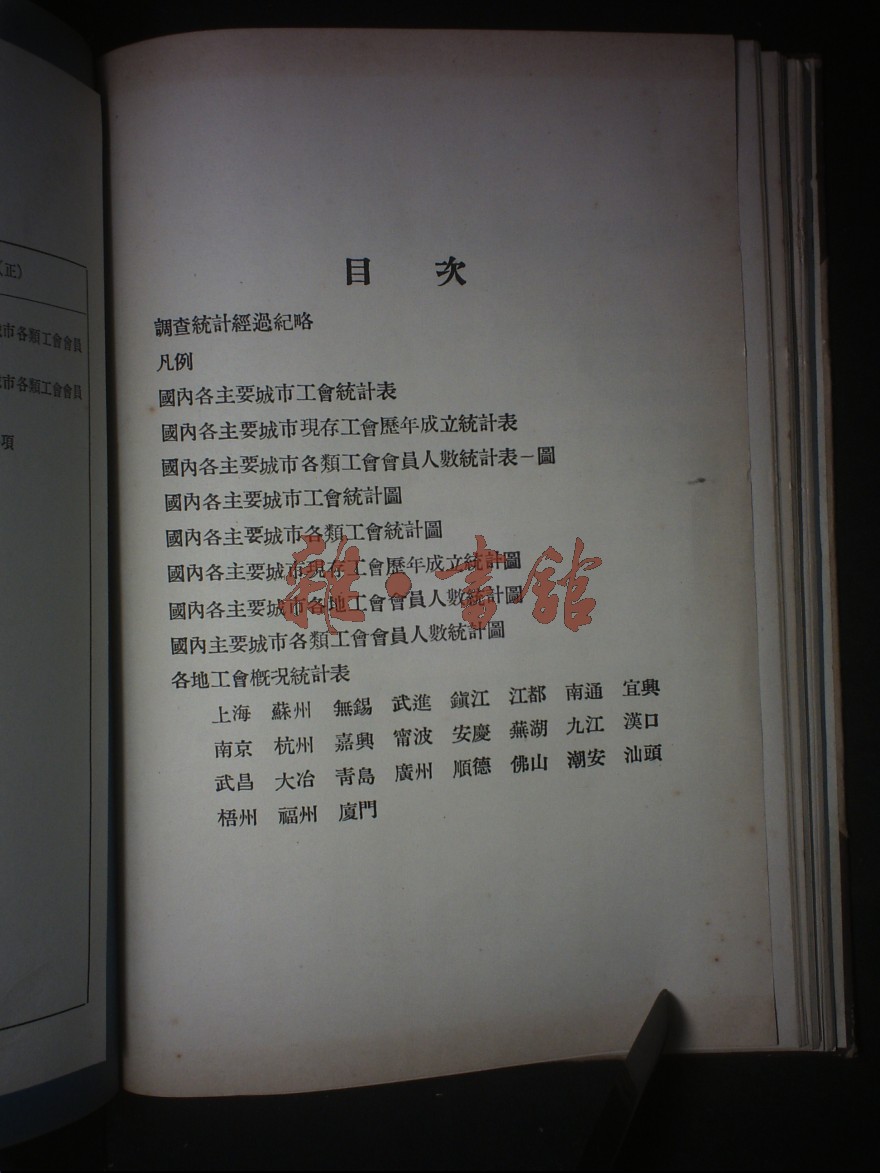 (正)
城市各類工會會員
城市各類工會會員
項
目 次
調查統計經過紀略
凡例
國內各主要城市工會統計表
國內各主要城市現存工會歷年成立統計表
國內各主要城市各類工會會員人數統計表一圖
國內各主要城市工會統計圖
國內各主要城市各類工會統計圖
國內各主要城市現存工會歷年成立統計圖
國內各主要城市各地工會會員人數統計圖
國內主要城市各類工會會員人數統計圖
各地工會概況統計表
上海 蘇州 無錫 武進 鎭江 江都 南通 宜興
南京 杭州 嘉興 甯波 安慶 蕪湖 九江 漢口
武昌 大冶 靑島 廣州 順德 佛山 潮安 汕頭
梧州 福州 廈門
雜·書館